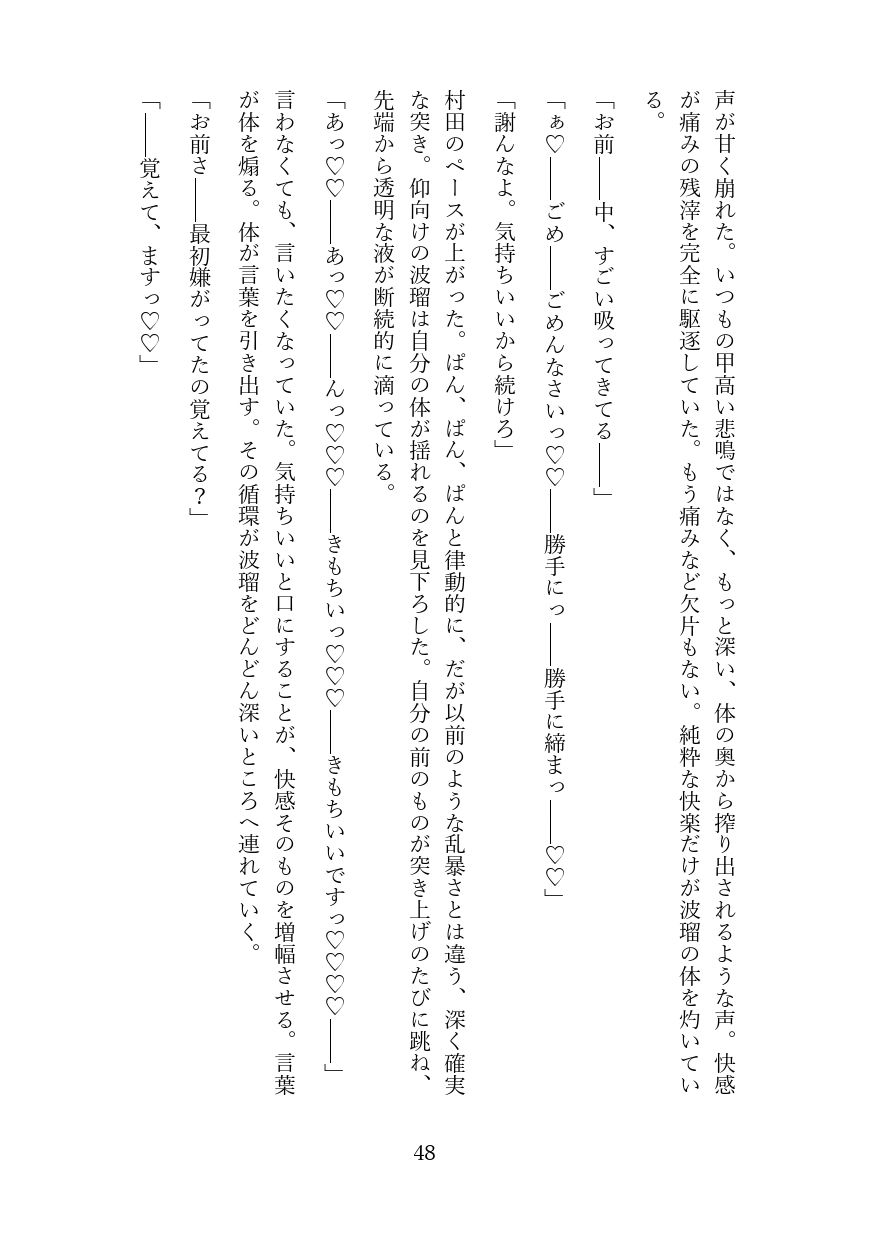 声が甘く崩れた。いつもの甲高い悲鳴ではなく、もっと深い、体の奥から搾り出されるような声。快感
が痛みの残滓を完全に駆逐していた。もう痛みなど欠片もない。純粋な快楽だけが波瑠の体を灼いてい
る。
「お前――中、すごい吸ってきてる――」
「ぁ♡――ごめ――ごめんなさいっ♡♡――勝手にっ――勝手に締まっ――♡♡」
「謝んなよ。気持ちいいから続けろ」
村田のペースが上がった。ぱん、ぱん、ぱんと律動的に、だが以前のような乱暴さとは違う、深く確実
な突き。仰向けの波瑠は自分の体が揺れるのを見下ろした。自分の前のものが突き上げのたびに跳ね、
先端から透明な液が断続的に滴っている。
「あっ♡♡――あっ♡♡――んっ♡♡♡――きもちいっ♡♡♡――きもちいいですっ♡♡♡♡――」
言わなくても、言いたくなっていた。気持ちいいと口にすることが、快感そのものを増幅させる。言葉
が体を煽る。体が言葉を引き出す。その循環が波瑠をどんどん深いところへ連れていく。
「お前さ――最初嫌がってたの覚えてる？」
「――覚えて、ますっ♡♡」
48